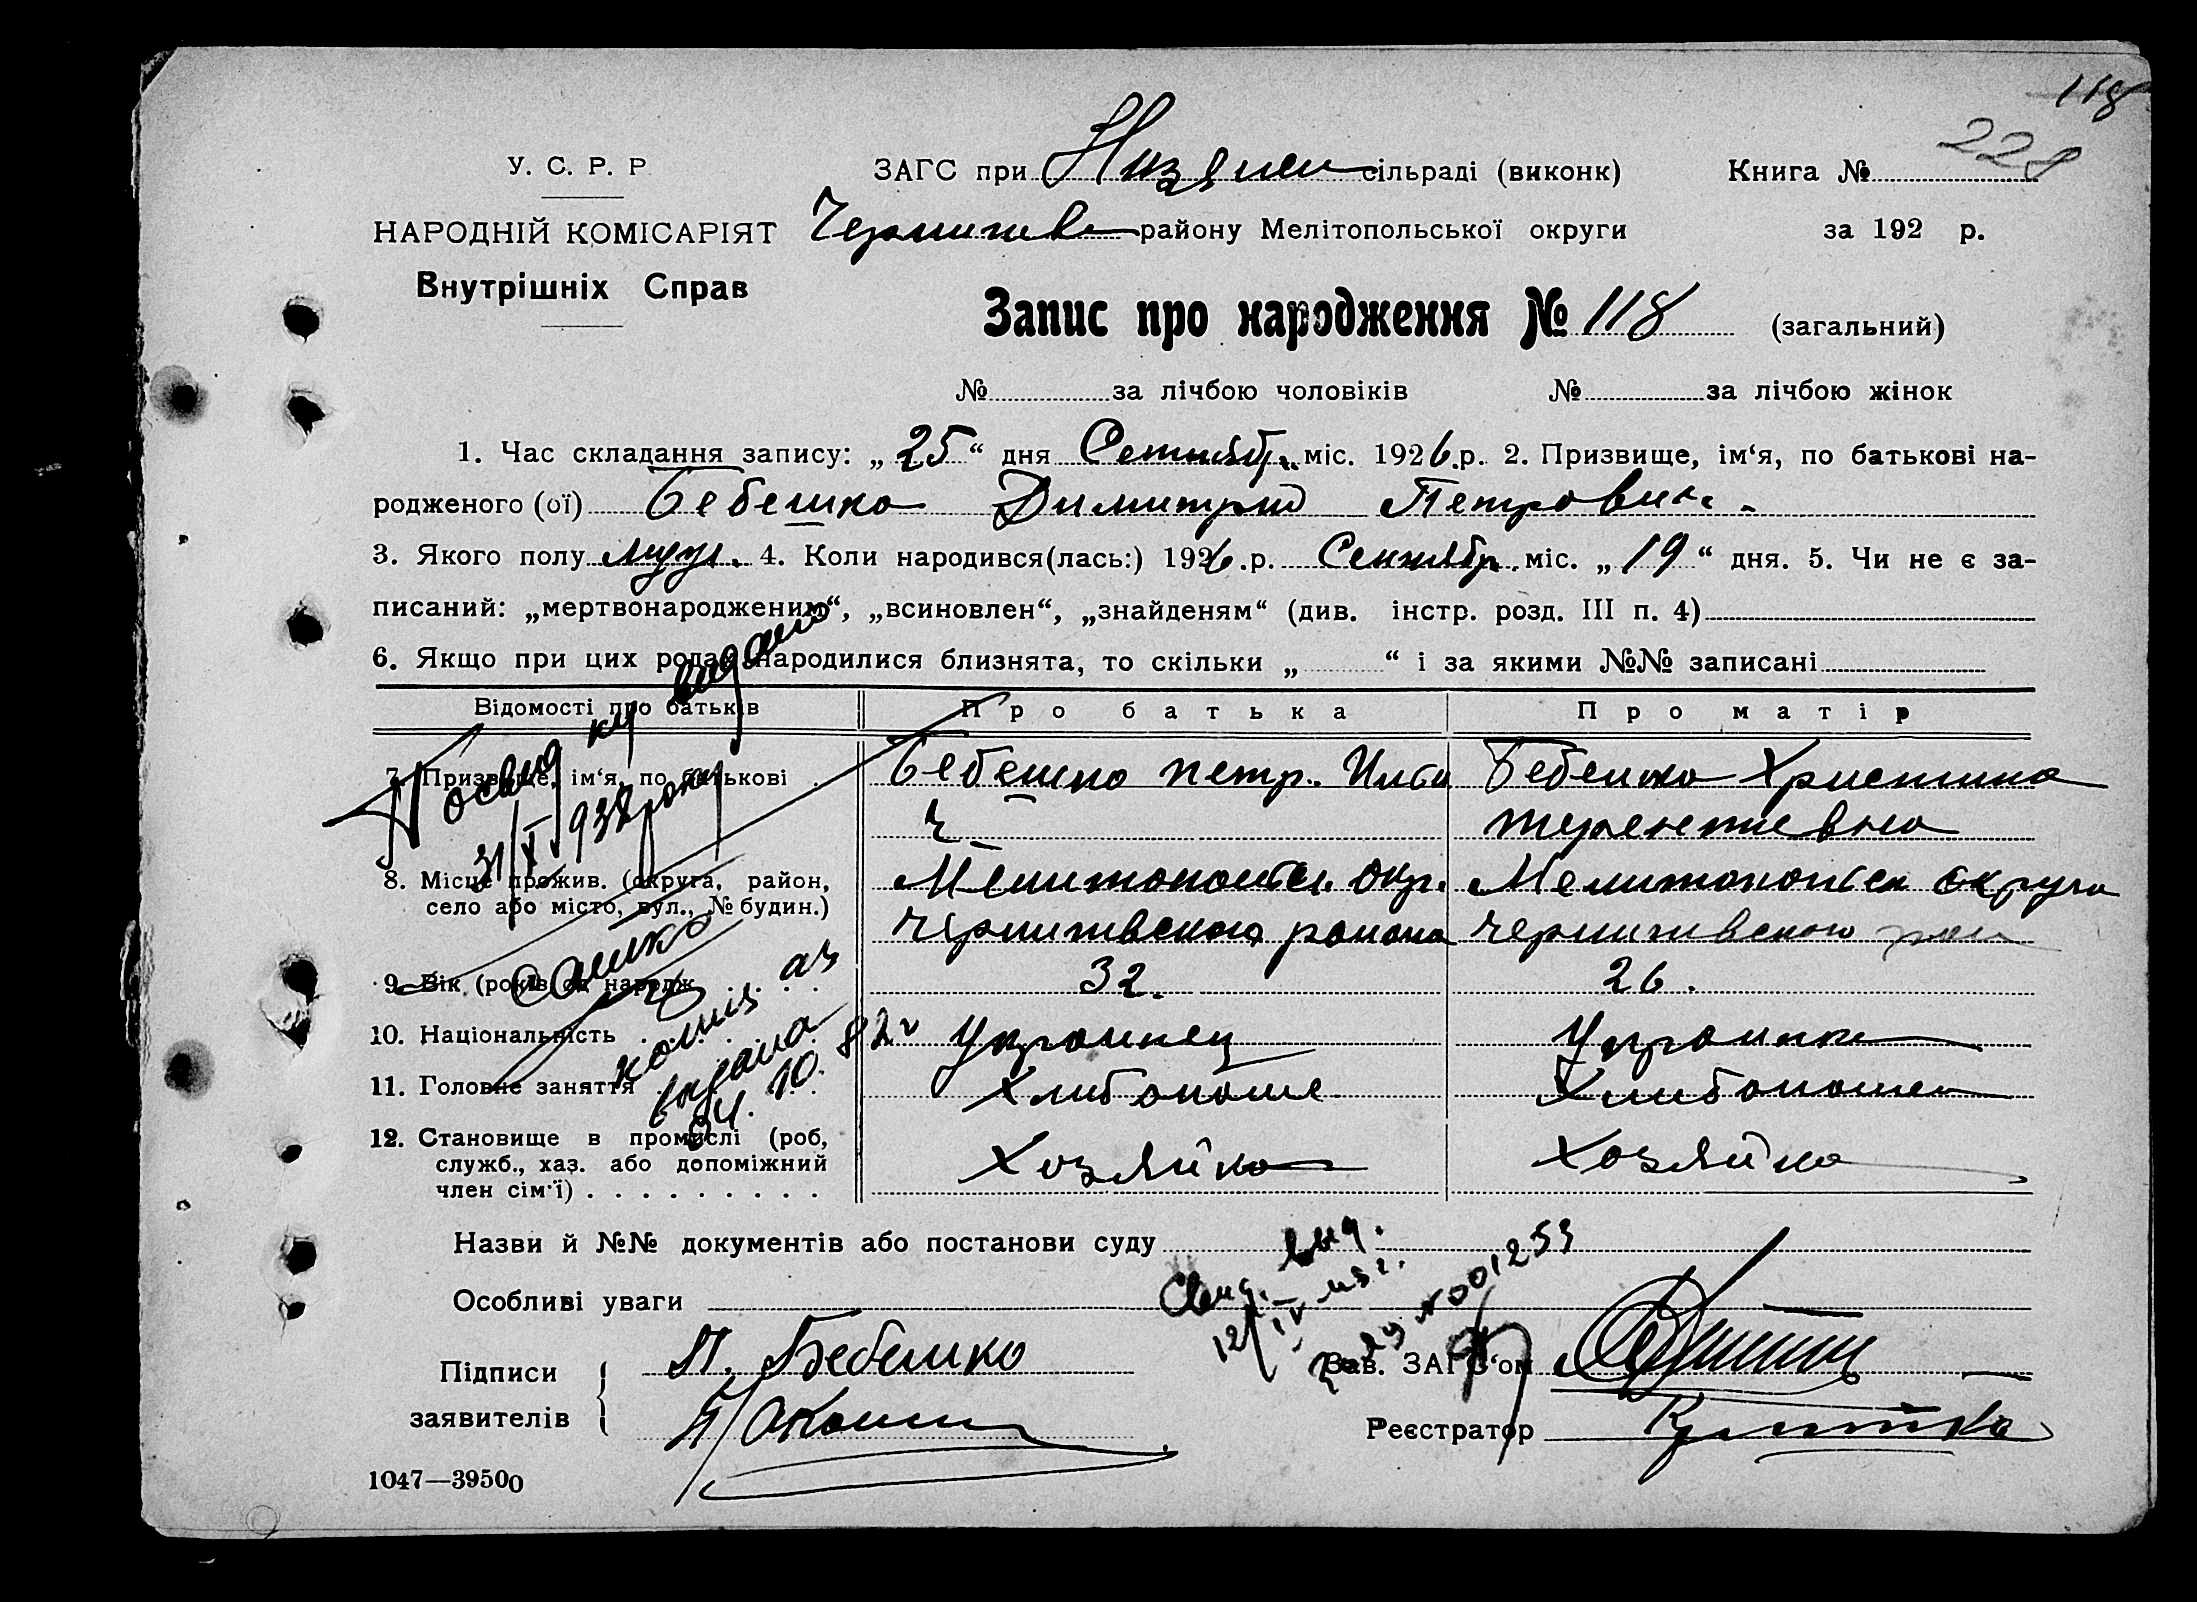 118
228
У. С. Р. Р
ЗАГС при сільраді (виконк) Книга №
НАРОДНІЙ КОМІСАРІЯТ району Мелітопольської округи за 192 р.
Внутрішніх Справ
Запис про народження № 118 (загальний)
№ за лічбою чоловіків № за лічбою жінок
1. Час складання запису: „25“ дня міс. 1926.р. 2. Призвище, ім‘я, по батькові на-
родженого (ої) Бебешко Димитрий Петрович
3. Якого полу муж. 4. Коли народився(лась:) 1926.р. Сентябр. міс. „19“ дня. 5. Чи не є за-
писаний: „мертвонародженим“, „всиновлен“, „знайденям“ (див. інстр. розд. III п. 4)
6. Якщо при цих родах народилися близнята, то скільки „ “ і за якими №№ записані
Відомості про батьків Про батька Про матір
7. Призвище, ім‘я, по батькові Бебешко Петр. Бебешко Христина
8. Місце прожив. (округа, район, Мелитопольск. окр. Мелитопольск округа
село або місто, вул., № будин.)
9. Вік (років од народж. 32. 26.
10. Національність Украинец Украинка
11. Головне заняття
12. Становище в промислі (роб, Хозяйка Хозяйка
служб., хаз. або допоміжний
член сім‘ї)
Посвідку видано
31/X 1938 року
копия аз
видана
04. 10. 82 г
Назви й №№ документів або постанови суду
Особливі уваги
Свид. выд.
12/IV
№ 001253
Підписи П. Бебешко Зав. ЗАГС‘ом
заявителів Реєстратор
1047—39500